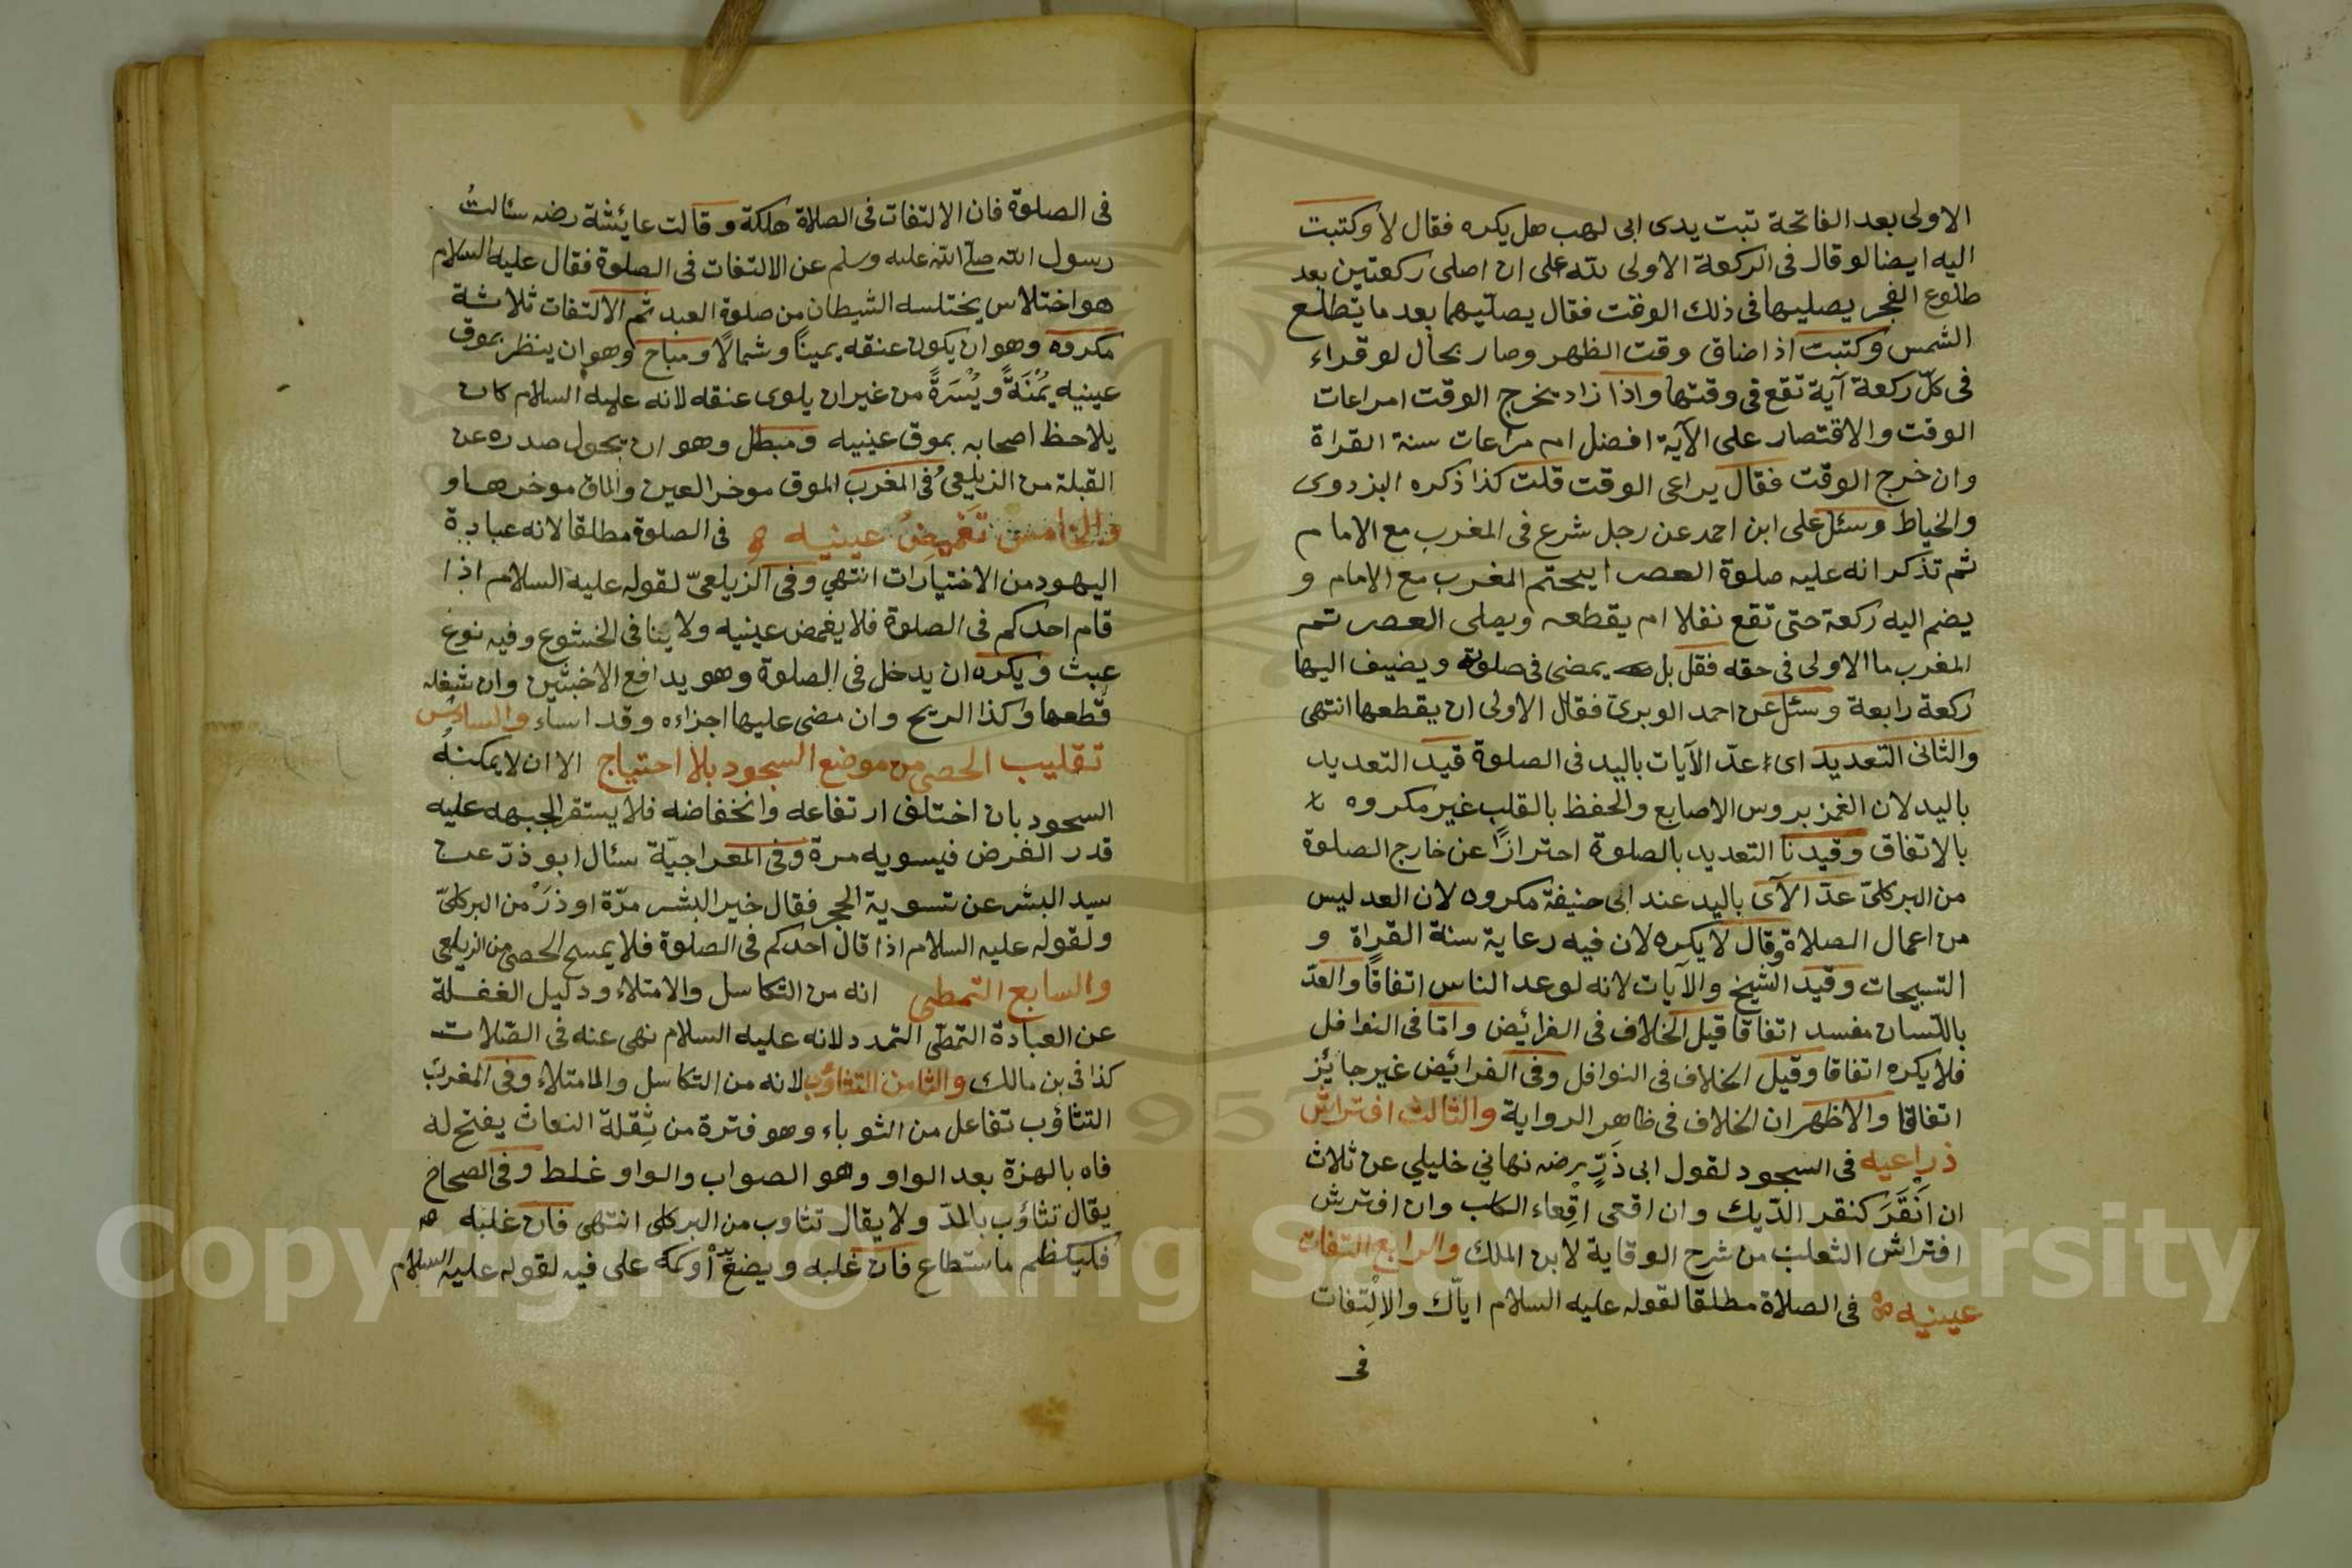 الاولى بعد الفاتحة تبت يدى ابى لهب هل يكره فقال لا وكتبت
اليه ايضا لو قال فى الركعة الاولى لله على ان اصلى ركعتين بعد
طلوع الفجر يصليها فى ذلك الوقت فقال يصلّيهما بعد ما يتطلع
الشمس وكتبت اذا ضاق وقت الظهر وصار بحال لو قراء
فى كلّ ركعة آية تقع فى وقتها واذا زاد يخرج الوقت امراعات
الوقت والاقتصار على الآية افضل ام مراعات سنة القراة
وان خرج الوقت فقال يراعى الوقت قلت كذا ذكره البزدوى
والخياط وسئل على ابن احمد عن رجل شرع فى المغرب مع الامام
ثم تذكر انه عليه صلوة العصر ايحتم المغرب مع الامام و
يضم اليه ركعة حتى تقع نفلا ام يقطعه ويصلى العصر ثم
المغرب ما الاولى فى حقه فقل بل يمضى فى صلوته ويضيف اليها
ركعة رابعة وسئل عن احمد الوبرىّ فقال الاولى ان يقطعها انتهى
والثانى التعديد اى عدّ الآيات باليد فى الصلوة قيد التعديد
باليد لان الغمز بروس الاصابع والحفظ بالقلب غير مكروه
بالاتفاق وقيدنا التعديد بالصلوة احترازًا عن خارج الصلوة
من البركلىّ عدّ الآى باليد عند ابى حنيفة مكروه لان العد ليس
من اعمال الصلاة وقال لا يكره لان فيه رعاية سنة القراة و
التسبيحات وقيد الشيخ والآيات لانه لو عد الناس اتفاقًا والعدّ
باللسان مفسد اتفاقا قيل الخلاف فى الفرائض وامّا فى النوافل
فلا يكره اتفاقا وقيل الخلاف فى النوافل وفى الفرائض غير جايئز
اتفاقا والاظهر ان الخلاف فى ظاهر الرواية والثالث افتراش
ذراعيه فى السجود لقول ابى ذرٍّ رضه نهانى خليلي عن ثلاث
ان انقَرَ كنقر الدّيك وان اقعى اقِعاء الكلب وان افترش
افتراش الثعلب من شرح الوقاية لابن الملك والرابع التفات
عينيه فى الصلاة مطلقا لقوله عليه السلام ايّاك والالْتِفات
فى
فى الصلوة فان الالتفات فى الصلاة هلكة وقالت عايئشة رضه سئالتُ
رسول الله صلّى الله عليه وسلم عن الالتفات فى الصلوة فقال عليه السلام
هو اختلاس يختلسه الشيطان من صلوة العبد ثم الالتفات ثلاثة
مكروه وهو ان يكون عنقه يمينًا وشمالًا ومباح وهو ان ينظر بموق
عينيه يُمْنَةً ويُسْرَةً من غير ان يلوى عنقه لانه عليه السلام كان
يلاحظ اصحابه بموق عينيه ومبطل وهو ان يحول صدره عن
القبلة من الزيلعىّ فى المغرب الموق موخر العين والماق موخرها و
والخامس تغميضُ عينيه فى الصلوة مطلقا لانه عبادة
اليهود من الاختيارات انتهي وفى الزيلعىّ لقوله عليه السلام اذا
قام احدكم فى الصلوة فلا يغمض عينيه ولا ينافى الخشوع وفيه نوع
عبث ويكره ان يدخل فى الصلوة وهو يدافع الاخبثين وان شغله
قطعها وكذا الريح وان مضى عليها اجزاءه وقد اساء والسادس
تقليب الحصى من موضع السجود بلا احتياج الا ان لا يمكنهُ
السجود بان اختلف ارتفاعه وانخفاضه فلا يستقر الجبهه عليه
قدر الفرض فيسويه مرة وفى المعراجيّة سئال ابو ذرّ عن
سيد البشر عن تسوية الحجر فقال خير البشر مرّة او ذَرْ من البركلىّ
ولقوله عليه السلام اذا قال احدكم فى الصلوة فلا يمسح الحصى من الزيلعى
والسابع التمطى انه من التكاسل والامتلاء ودليل الغفلة
عن العبادة التمطّى التمدد لانه عليه السلام نهى عنه فى الصّلات
كذا فى بن مالك والثامن التثاؤب لانه من التكاسل والامتلاء وفى المغرب
التثاؤب تفاعل من الثوباء وهو فترة من ثِقلة النعاث يفتح له
فاه بالهزة بعد الواو وهو الصواب والواو غلط وفى الصحاح
يقال تثاؤب بالمدّ ولا يقال تثاوب من البركلى انتهى فان غلبه
فليكظم ماستطاع فان غلبه ويضع او كمّه على فيه لقوله عليه السلام
Copyright © King Saud University